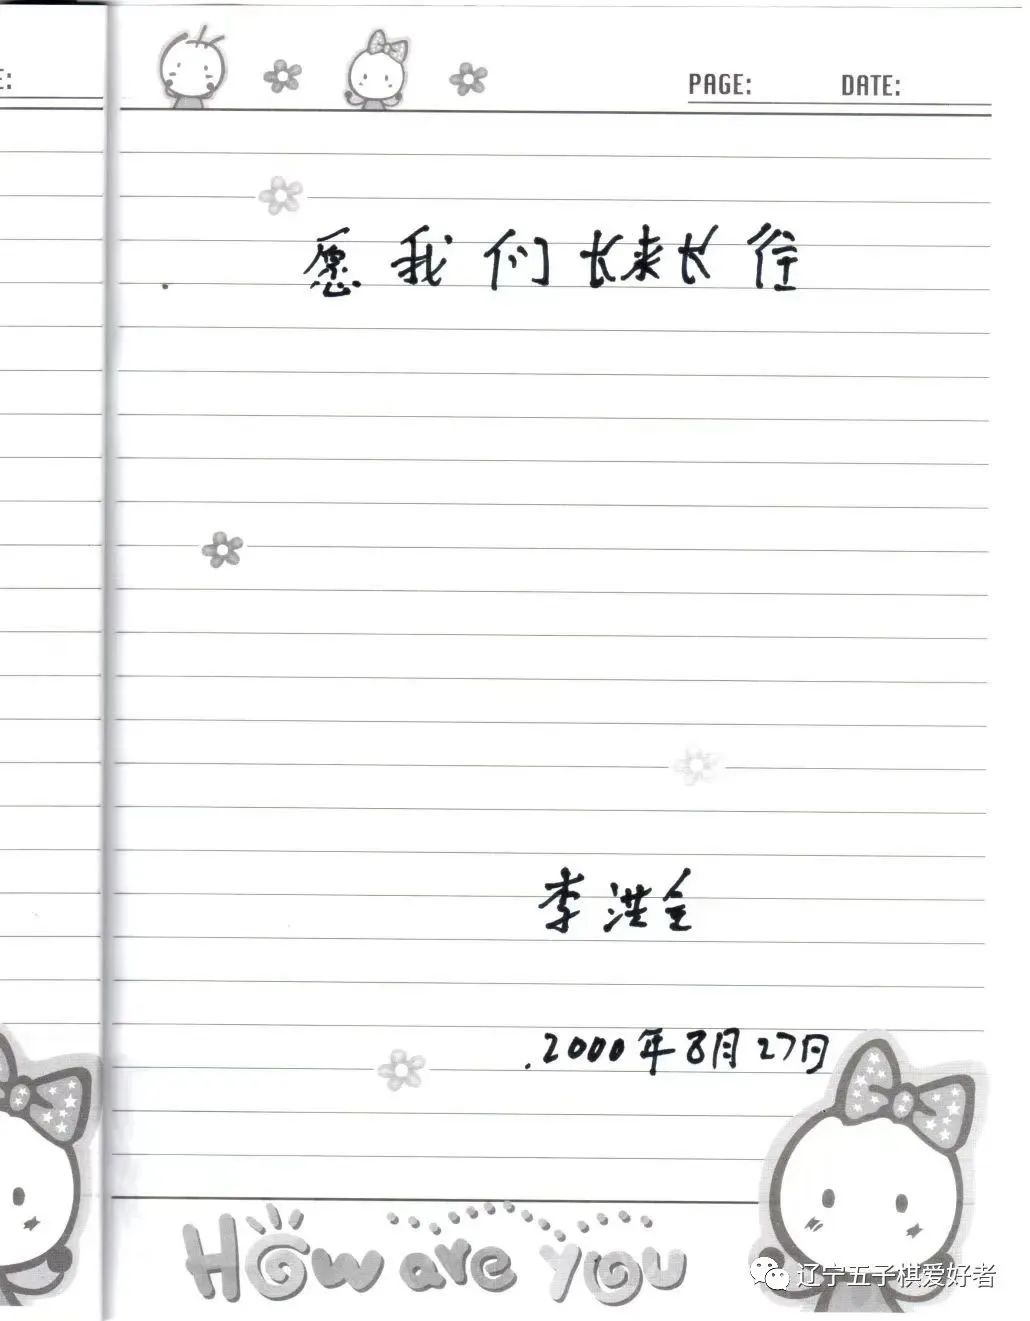 E:
PAGE: DATE:
愿我们长来长往
李洪全
2000年8月27日
How are you
辽宁五子棋爱好者